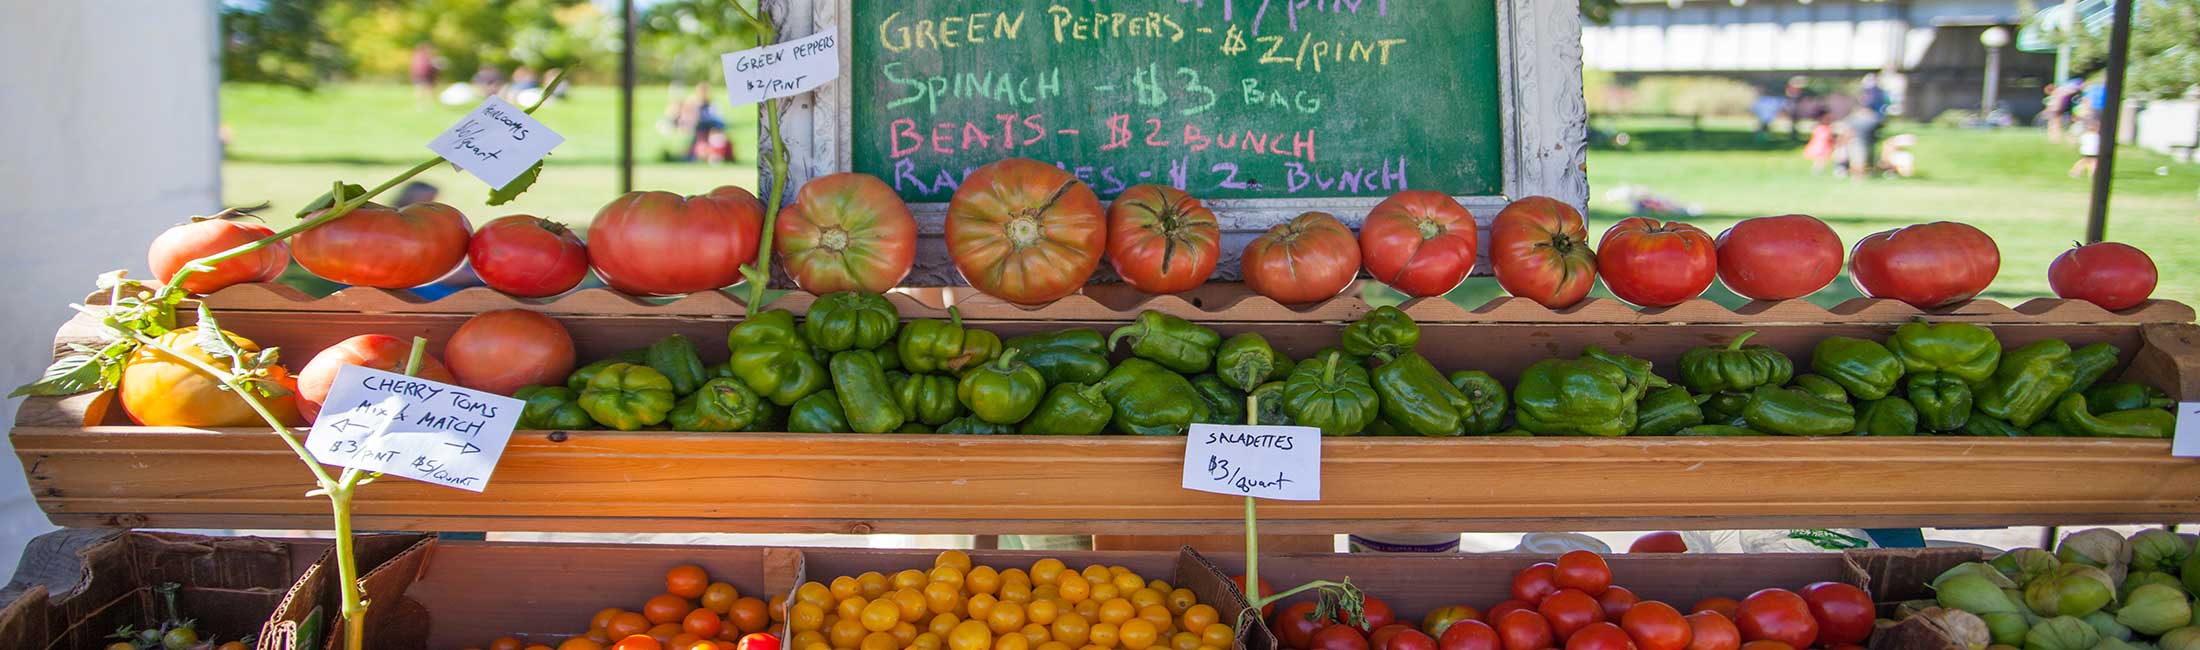 /PINT
GREEN PEPPERS - $2/PINT
SPINACH - $3 BAG
BEATS - $2 BUNCH
- $2 BUNCH
GREEN PEPPERS
$2/PINT
HEIRLOOMS
/Quart
CHERRY TOMS
MIX & MATCH
← →
$3/PINT $5/QUART
SALADETTES
$3/quart